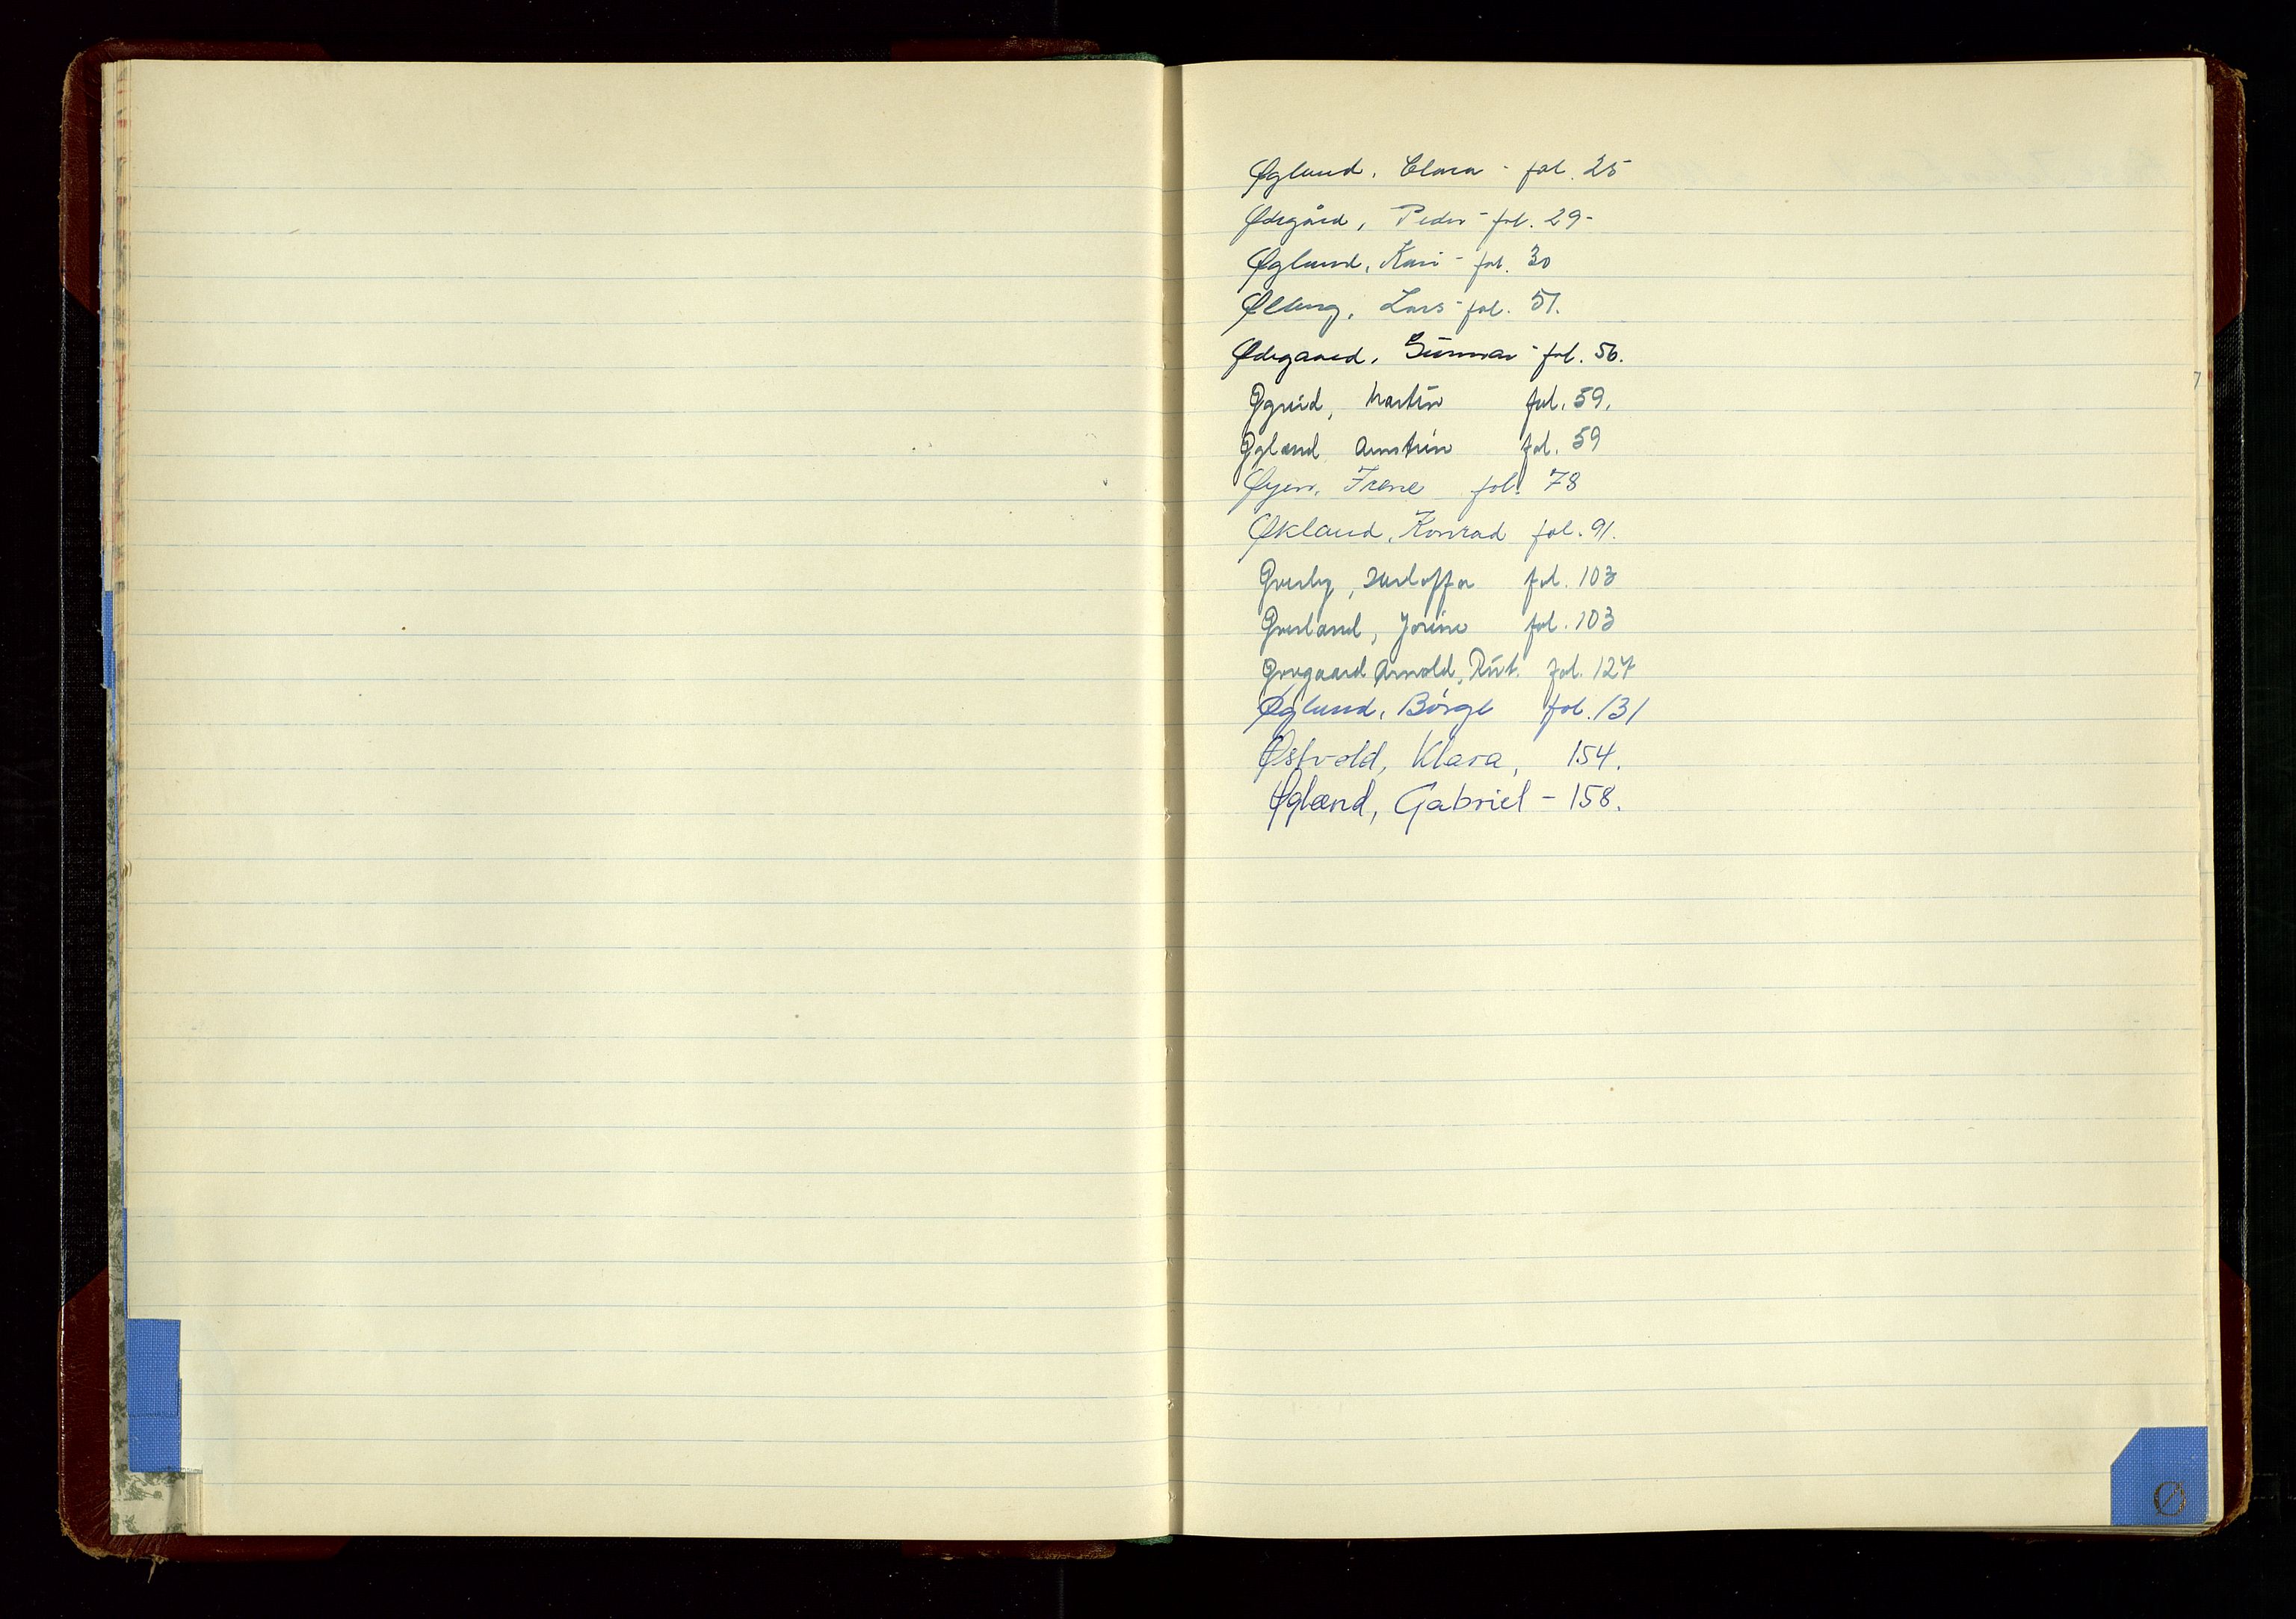 Øgland, Clara - fol. 25
Ødegård, Peder - fol. 29-
Øgland, Kari - fol. 30
Ølberg, Lars - fol. 51.
Ødegaard, Gunnar - fol. 56.
Øgreid, Martin fol. 59.
Øgland Arnstein fol. 59
Øyen, Irene fol. 78
Økland, Konrad fol. 91.
Øverby, fol. 103
Øverland, Jorine fol. 103
Øvregaard Arnold, Rut. fol. 127
Øglænd, Børge fol. 131
Østvold, Klara, 154.
Øglænd, Gabriel - 158.
Ø